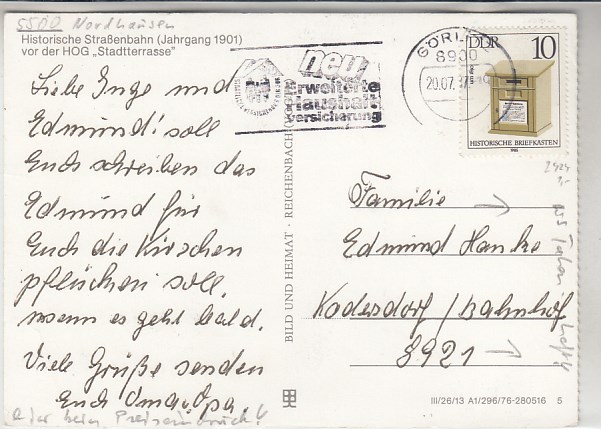 5500 Nordhausen
Historische Straßenbahn (Jahrgang 1901)
vor der HOG „Stadtterrasse"
Liebe Inge und
Edmund! soll
Euch schreiben das
Edmund für
Euch die Kirschen
pflücken soll,
wenn es geht bald.
Viele Grüße senden
Euch Oma u. Opa.
BILD UND HEIMAT · REICHENBACH
neu
Erweiterte
Haushalt
versicherung
GÖRL
8900
20.07.
DDR 10
HISTORISCHE BRIEFKASTEN
1985
Familie
Edmund Hanke
Kodersdorf / Bahnhof
8921
III/26/13 A1/296/76-280516 5